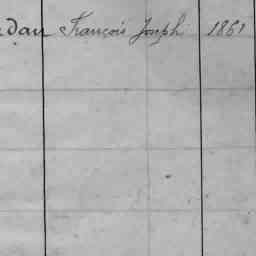 dau François Joseph 1861